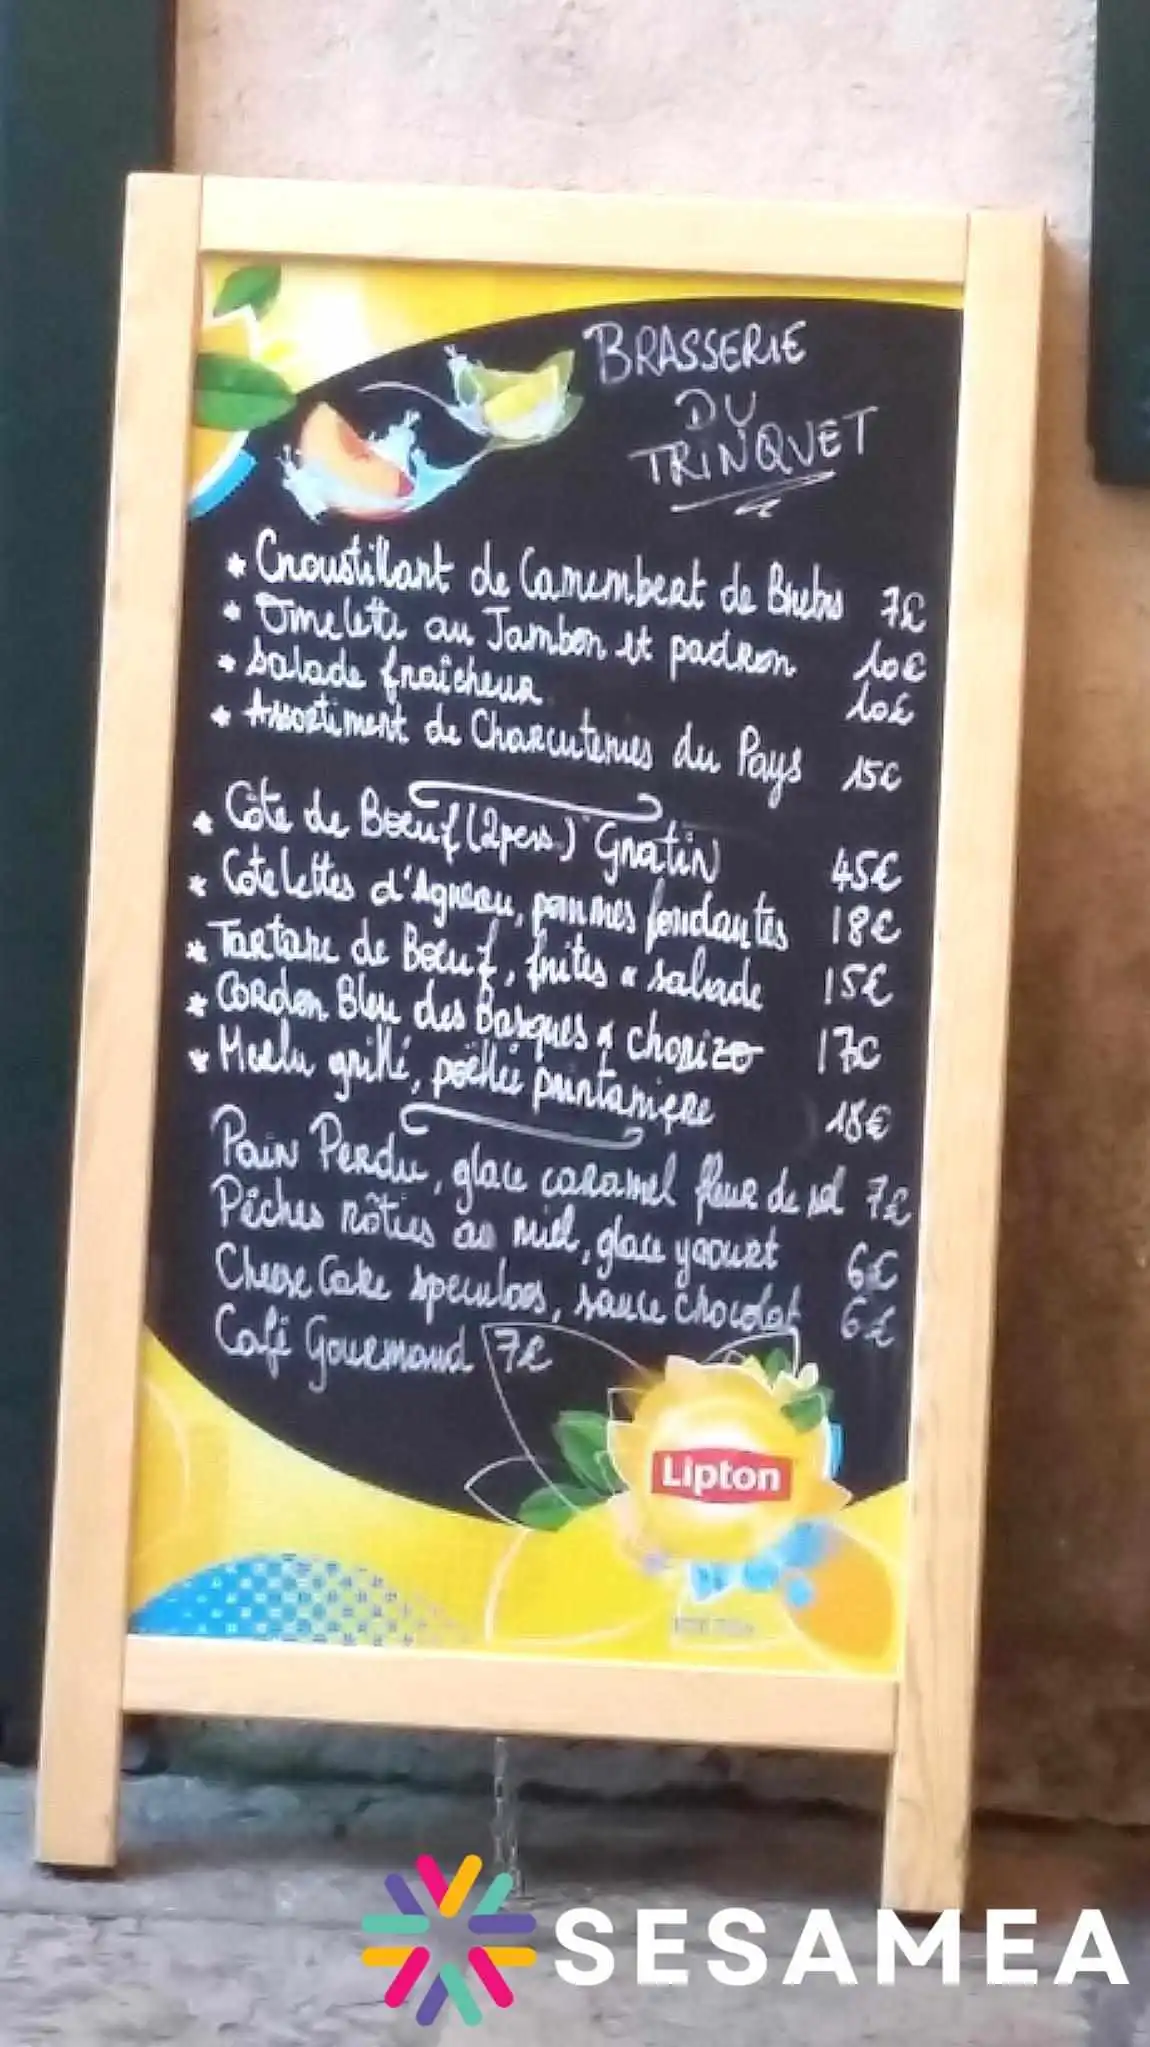 BRASSERIE
DU
TRINQUET
* Croustillant de Camembert de Brebis 7€
* Omelette au Jambon et padron 10€
* Salade fraîcheur 10€
* Assortiment de Charcuteries du Pays 15€
* Côte de Bœuf (2pers.) Gratin 45€
* Cotelettes d'Agneau, pommes fondantes 18€
* Tartare de Bœuf, frites & salade 15€
* Cordon Bleu des Basques & chorizo 17€
* Merlu grillé, poêlée printanière 18€
Pain Perdu, glace caramel fleur de sel 7€
Pêches rôties au miel, glace yaourt 6€
Cheese Cake speculoos, sauce chocolat 6€
Café Gourmand 7€
Lipton
SESAMEA